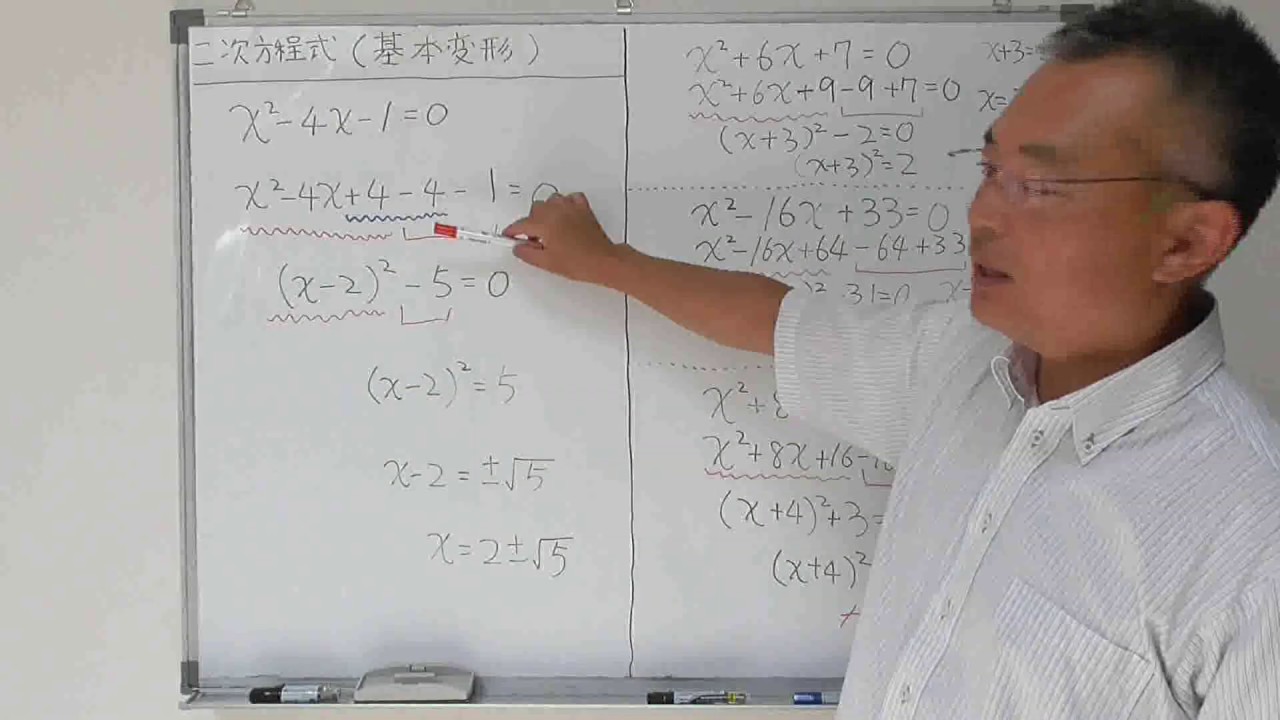 二次方程式(基本変形)
x²-4x-1=0
x²-4x+4-4-1=0
(x-2)²-5=0
(x-2)²=5
x-2=±√5
x=2±√5
x²+6x+7=0
x²+6x+9-9+7=0
(x+3)²-2=0
(x+3)²=2
x+3=
x=
x²-16x+33=0
x²-16x+64-64+33
)² 31=0
x²+8
x²+8x+16-16
(x+4)²+3=
(x+4)²